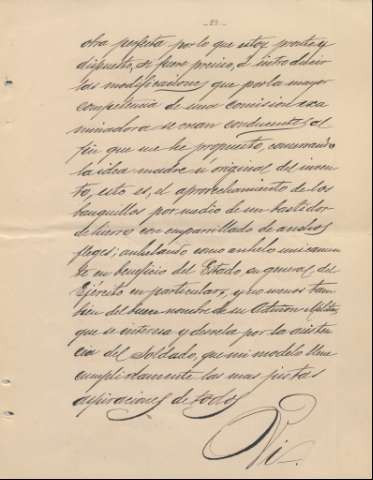 -21-
obra perfecta por lo que estoy pronto y
dispuesto, si fuere preciso, á introducir
las modificaciones que por la mayor
competencia de una comision exa
minadora se crean conducentes al
fin que me he propuesto, conservando
la idea madre ú original del inven
to, esto es, el aprovechamiento de los
banquillos por medio de un bastidor
de hierro con emparrillado de anchos
flejes; anhelando como anhelo unicamen
te en beneficio del Estado en general, del
Ejército en particular, y no menos tam
bien del buen nombre de su Militar,
que se interesa y desvela por la asisten
cia del Soldado, que mi modelo llene
cumplidamente las mas justas
aspiraciones de todos